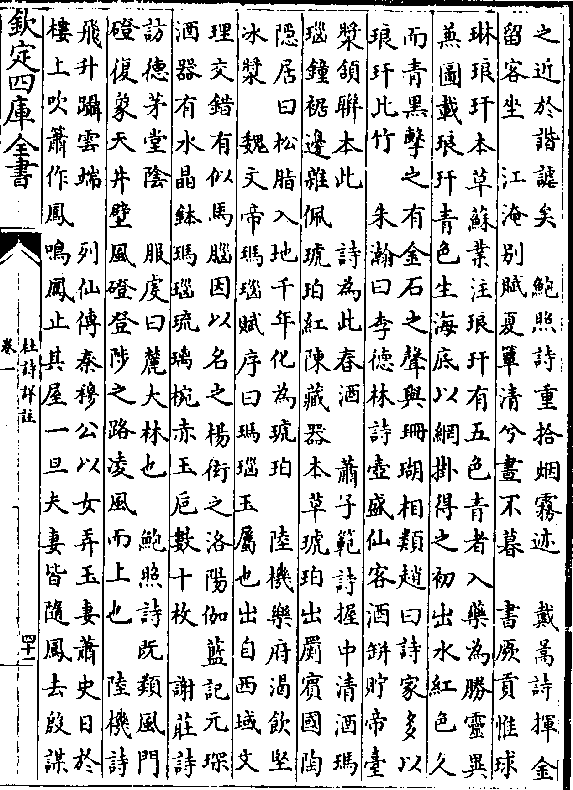 之近於諧謔矣　鮑照詩重拾烟霧迹　戴暠詩揮金
留客坐　江淹别賦夏簟清兮晝不暮　書厥貢惟球
琳琅玕本草蘇㳟注琅玕有五色青者入藥為勝靈異
兼圖載琅玕青色生海底以網掛得之初出水紅色久
而青黑擊之有金石之聲與珊瑚相類趙曰詩家多以
琅玕比竹　朱瀚曰李德林詩壺盛仙客酒缾貯帝臺
漿頷聯本此　詩為此春酒　蕭子範詩握中清酒瑪
瑙鐘裾邊雜佩琥珀紅陳藏器本草琥珀出罽賓國陶
隠居曰松脂入地千年化為琥珀　陸機樂府渇飲堅
冰漿　魏文帝瑪瑙賦序曰瑪瑙玉屬也出自西域文
理交錯有似馬腦因以名之楊衒之洛陽伽藍記元琛
酒器有水晶鉢瑪瑙琉璃椀赤玉巵數十枚　謝莊詩
訪德茅堂陰　服虔曰麓大林也　鮑照詩既類風門
磴復象天井壁風磴登陟之路凌風而上也　陸機詩
飛升躡雲端　列仙傳秦穆公以女弄玉妻蕭史日於
樓上吹蕭作鳳鳴鳳止其屋一旦夫妻皆隨鳳去殷謀
欽定四庫全書
杜詩詳註
卷一
四十二